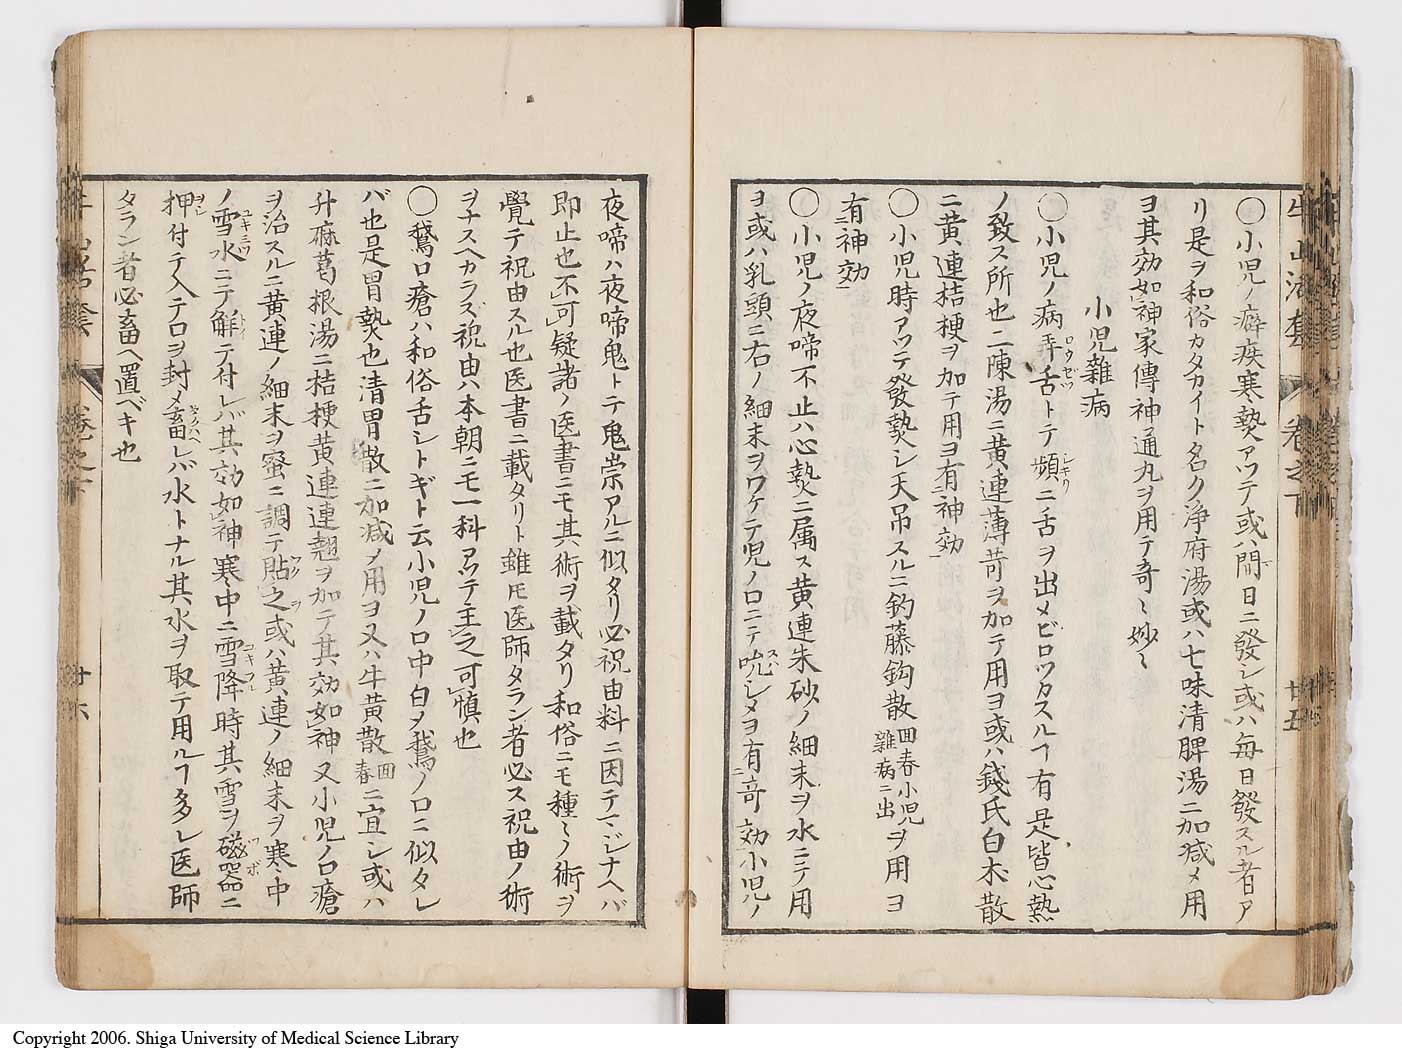 牛山活套 卷之下 廿五
○小児ノ癖疾寒𤍠アツテ或ハ間日ニ發シ或ハ毎日發スル者ア
リ是ヲ和俗カタカイト名ク浄府湯或ハ七味清脾湯ニ加减メ用
ヨ其効如神家傳神通丸ヲ用テ奇〻妙〻
小児雜病
○小児ノ病弄舌トテ頻ニ舌ヲ出メビロツカスルヿ有是皆心熱
ノ致ス所也二陳湯ニ黄連薄荷ヲ加テ用ヨ或ハ錢氏白朮散
ニ黄連桔梗ヲ加テ用ヨ有神効
○小児時アツテ發𤍠シ天吊スルニ釣藤鈎散回春小児雜病ニ出ヲ用ヨ
有神効
○小児ノ夜啼不止ハ心𤍠ニ属ス黄連朱砂ノ細末ヲ水ニテ用
ヨ或ハ乳頭ニ右ノ細末ヲワケテ児ノ口ニテ吮シメヨ有竒効小児ノ
夜啼ハ夜啼鬼トテ鬼祟アルニ似タリ必祝由科ニ因テマジナヘバ
即止也不可疑諸ノ医書ニモ其術ヲ載タリ和俗ニモ種〻ノ術ヲ
覺テ祝由スル也医書ニ載タリト雖𪜈医師タラン者必ス祝由ノ術
ヲナスヘカラズ祝由ハ本朝ニモ一科アツテ主之可慎也
○鵞口瘡ハ和俗舌シトギト云小児ノ口中白メ鵞ノ口ニ似タレ
バ也是胃𤍠也清胃散ニ加减メ用ヨ又ハ牛黄散回春ニ宜シ或ハ
升麻葛根湯ニ桔梗黄連連翹ヲ加テ其効如神又小児ノ口瘡
ヲ治スルニ黄連ノ細末ヲ蜜ニ調テ貼之或ハ黄連ノ細末ヲ寒中
ノ雪水ニテ解テ付レバ其効如神寒中ニ雪降時其雪ヲ磁器ニ
押付テ入テ口ヲ封メ畜レバ水トナル其水ヲ取テ用ルヿ多シ医師
タラン者必畜ヘ置ベキ也
廿六